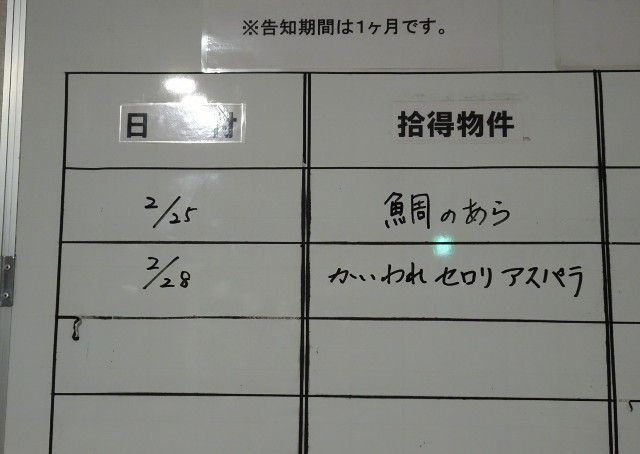 ※告知期間は1ヶ月です。
日 付
拾得物件
2/25
鯛のあら
2/28
かいわれ セロリ アスパラ